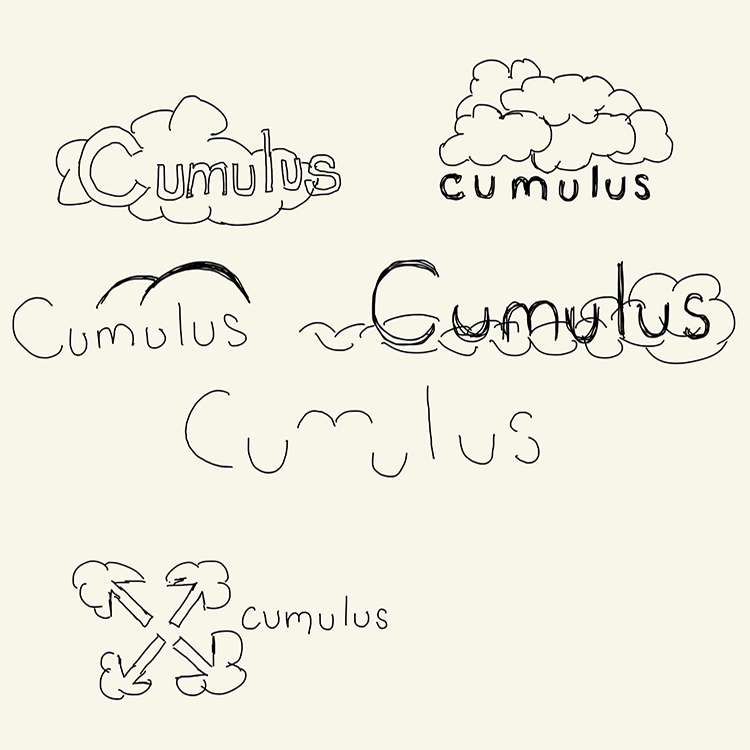 Cumulus
cumulus
Cumulus
Cumulus
Cumulus
cumulus